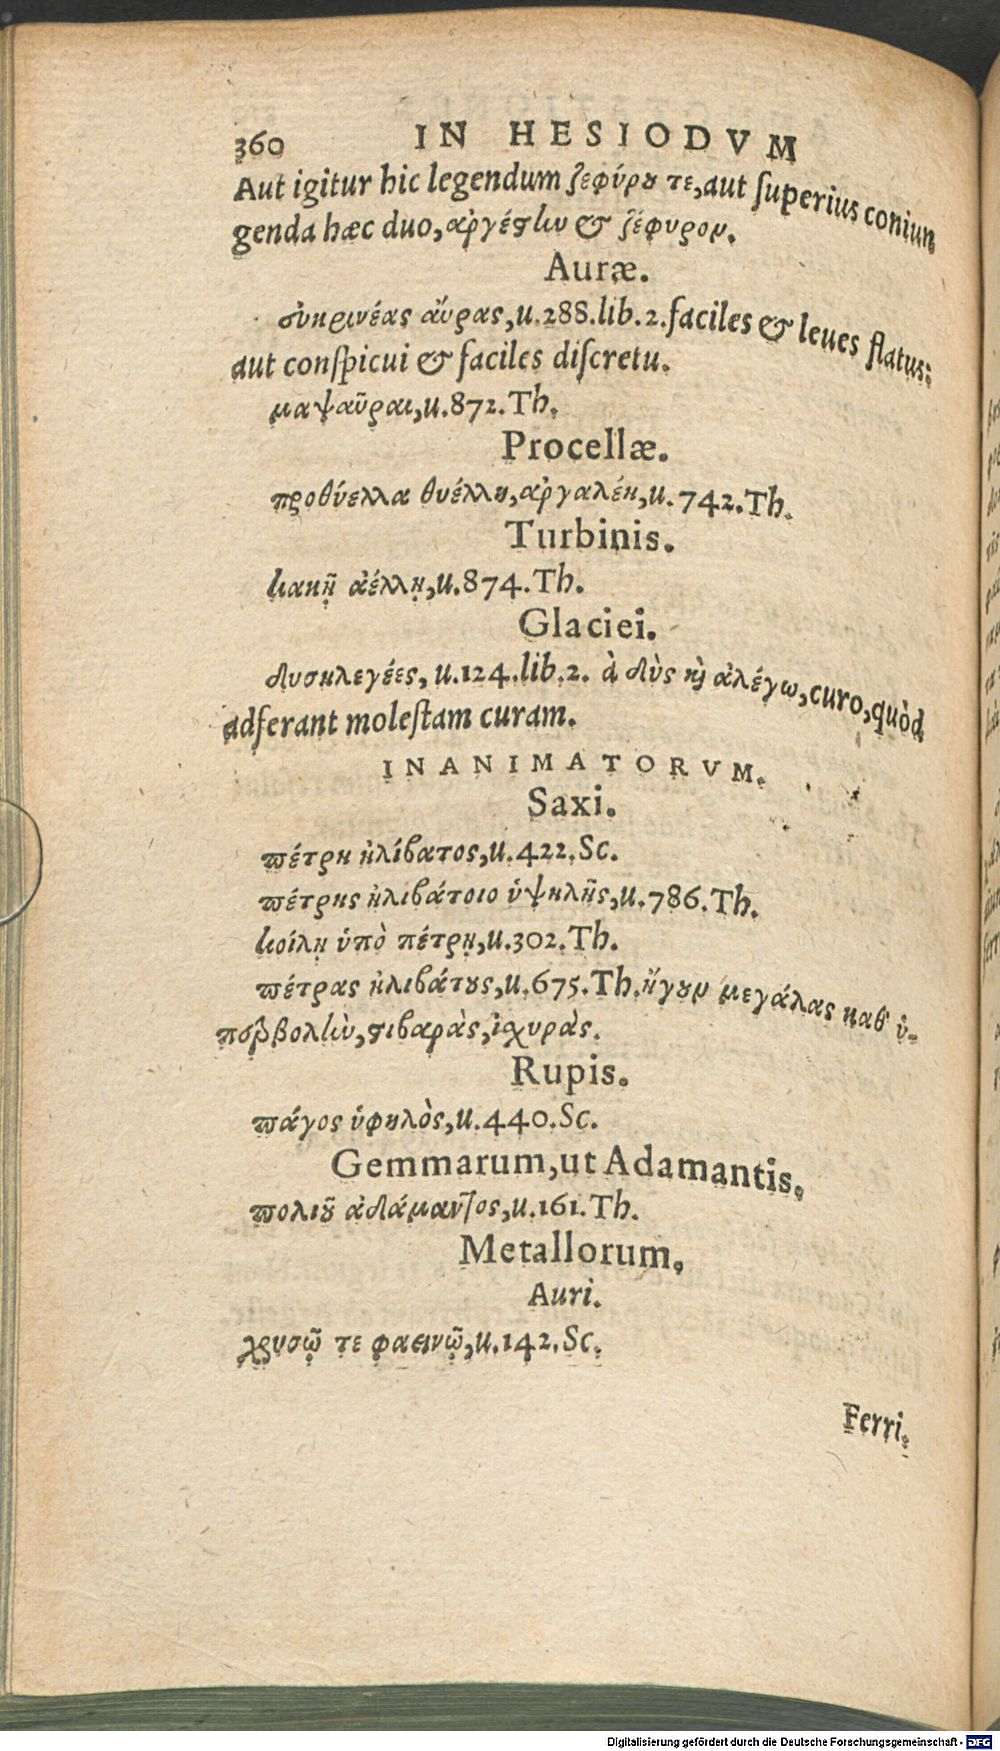 360 IN HESIODVM
Aut igitur hic legendum ζεφύρου τε, aut ſuperius coniun
genda hæc duo, ἀργέστlω & ζέφυρον.
Auræ.
εὐκρινέας αὔρας, u. 288. lib. 2. faciles & leues flatus:
aut conſpicui & faciles diſcretu.
μαψαῦραι, u. 872. Th.
Procellæ.
προθύελλα θυέλλη, ἀργαλέη, u. 742. Th.
Turbinis.
κακῇ ἀέλλῃ, u. 874. Th.
Glaciei.
δυσηλεγέες, u. 124. lib. 2. à δὺς καὶ ἀλέγω, curo, quòd
adferant moleſtam curam.
INANIMATORVM.
Saxi.
πέτρη ἠλίβατος, u. 422. Sc.
πέτρης ἠλιβάτοιο ὑψηλῆς, u. 786. Th.
κοίλῃ ὑπὸ πέτρῃ, u. 302. Th.
πέτρας ἠλιβάτους, u. 675. Th. ἤγουν μεγάλας καθ' ὑ-
περβολlὼ, στιβαρὰς, ἰχυρὰς.
Rupis.
πάγος ὑφηλὸς, u. 440. Sc.
Gemmarum, ut Adamantis.
πολιοῦ ἀδάμαντος, u. 161. Th.
Metallorum,
Auri.
χρυσῷ τε φαεινῷ, u. 142. Sc.
Ferri.
Digitalisierung gefördert durch die Deutsche Forschungsgemeinschaft - DFG